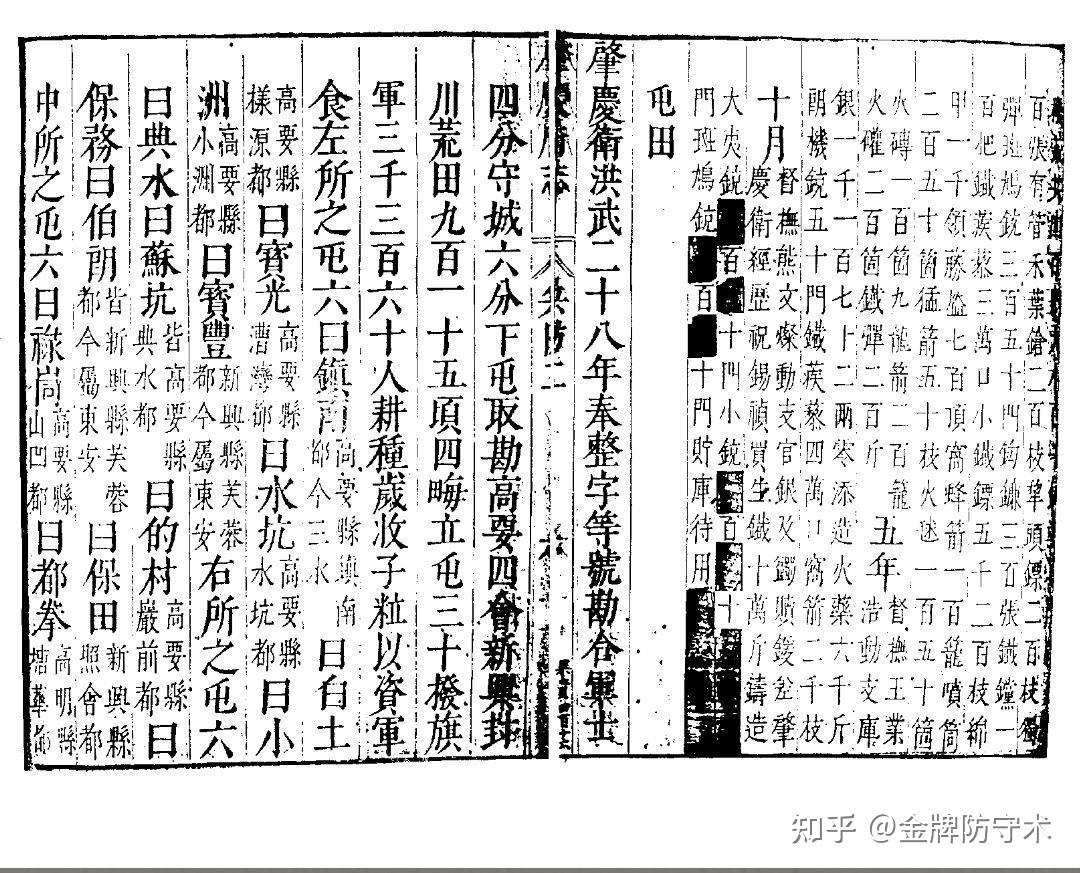 百張有管禾葉鎗二百枝犂頭鏢二百枝
彈班鳩銃三百五十門鈎鐮三百張鐵钂一
百把鐵蒺藜三萬口小鐵鏢五千二百枝綿
甲一千領藤盔七百頂窩蜂箭一百籠噴筒
二百五十箇猛箭五十枝火毬一百五十箇
火磚一百箇九龍箭二百籠 五年 督撫王業
火確二百箇鐵彈二百斤 浩動支庫
銀一千一百七十二兩零添造火藥六千斤
朗機銃五十門鐵蒺藜四萬口窩箭二千枝
十月 督撫熊文燦動支官銀及鐲贖鍰肇
慶衛經歷祝錫禎買生鐵十萬斤鑄造
大夾銃百十門小銃百十
門班鳩銃百十門貯庫待用
屯田
肇慶衛洪武二十八年奉整字等號勘合軍士
肇慶府志 兵防二
四分守城六分下屯取勘高要四會新興
川荒田九百一十五項四畮立屯三十撥旗
軍三千三百六十人耕種歲收子粒以資軍
食左所之屯六曰鎮南 高要縣鎮南都今三水 曰白土
高要縣樣源都 曰寶光 高要縣漕灣都 曰水坑 高要縣水坑都 曰小
洲 高要縣小洲都 曰寶豐 新興縣芙蓉都今屬東安 右所之屯六
曰典水曰蘇坑 皆高要縣典水都 曰的村 高要縣嚴前都 曰
保務曰伯朗 皆新興縣芙蓉都今屬東安 曰保田 新興縣照會都
中所之屯六曰祿崗 高要縣山凹都 曰都拳 高明縣都
知乎 @金牌防守术